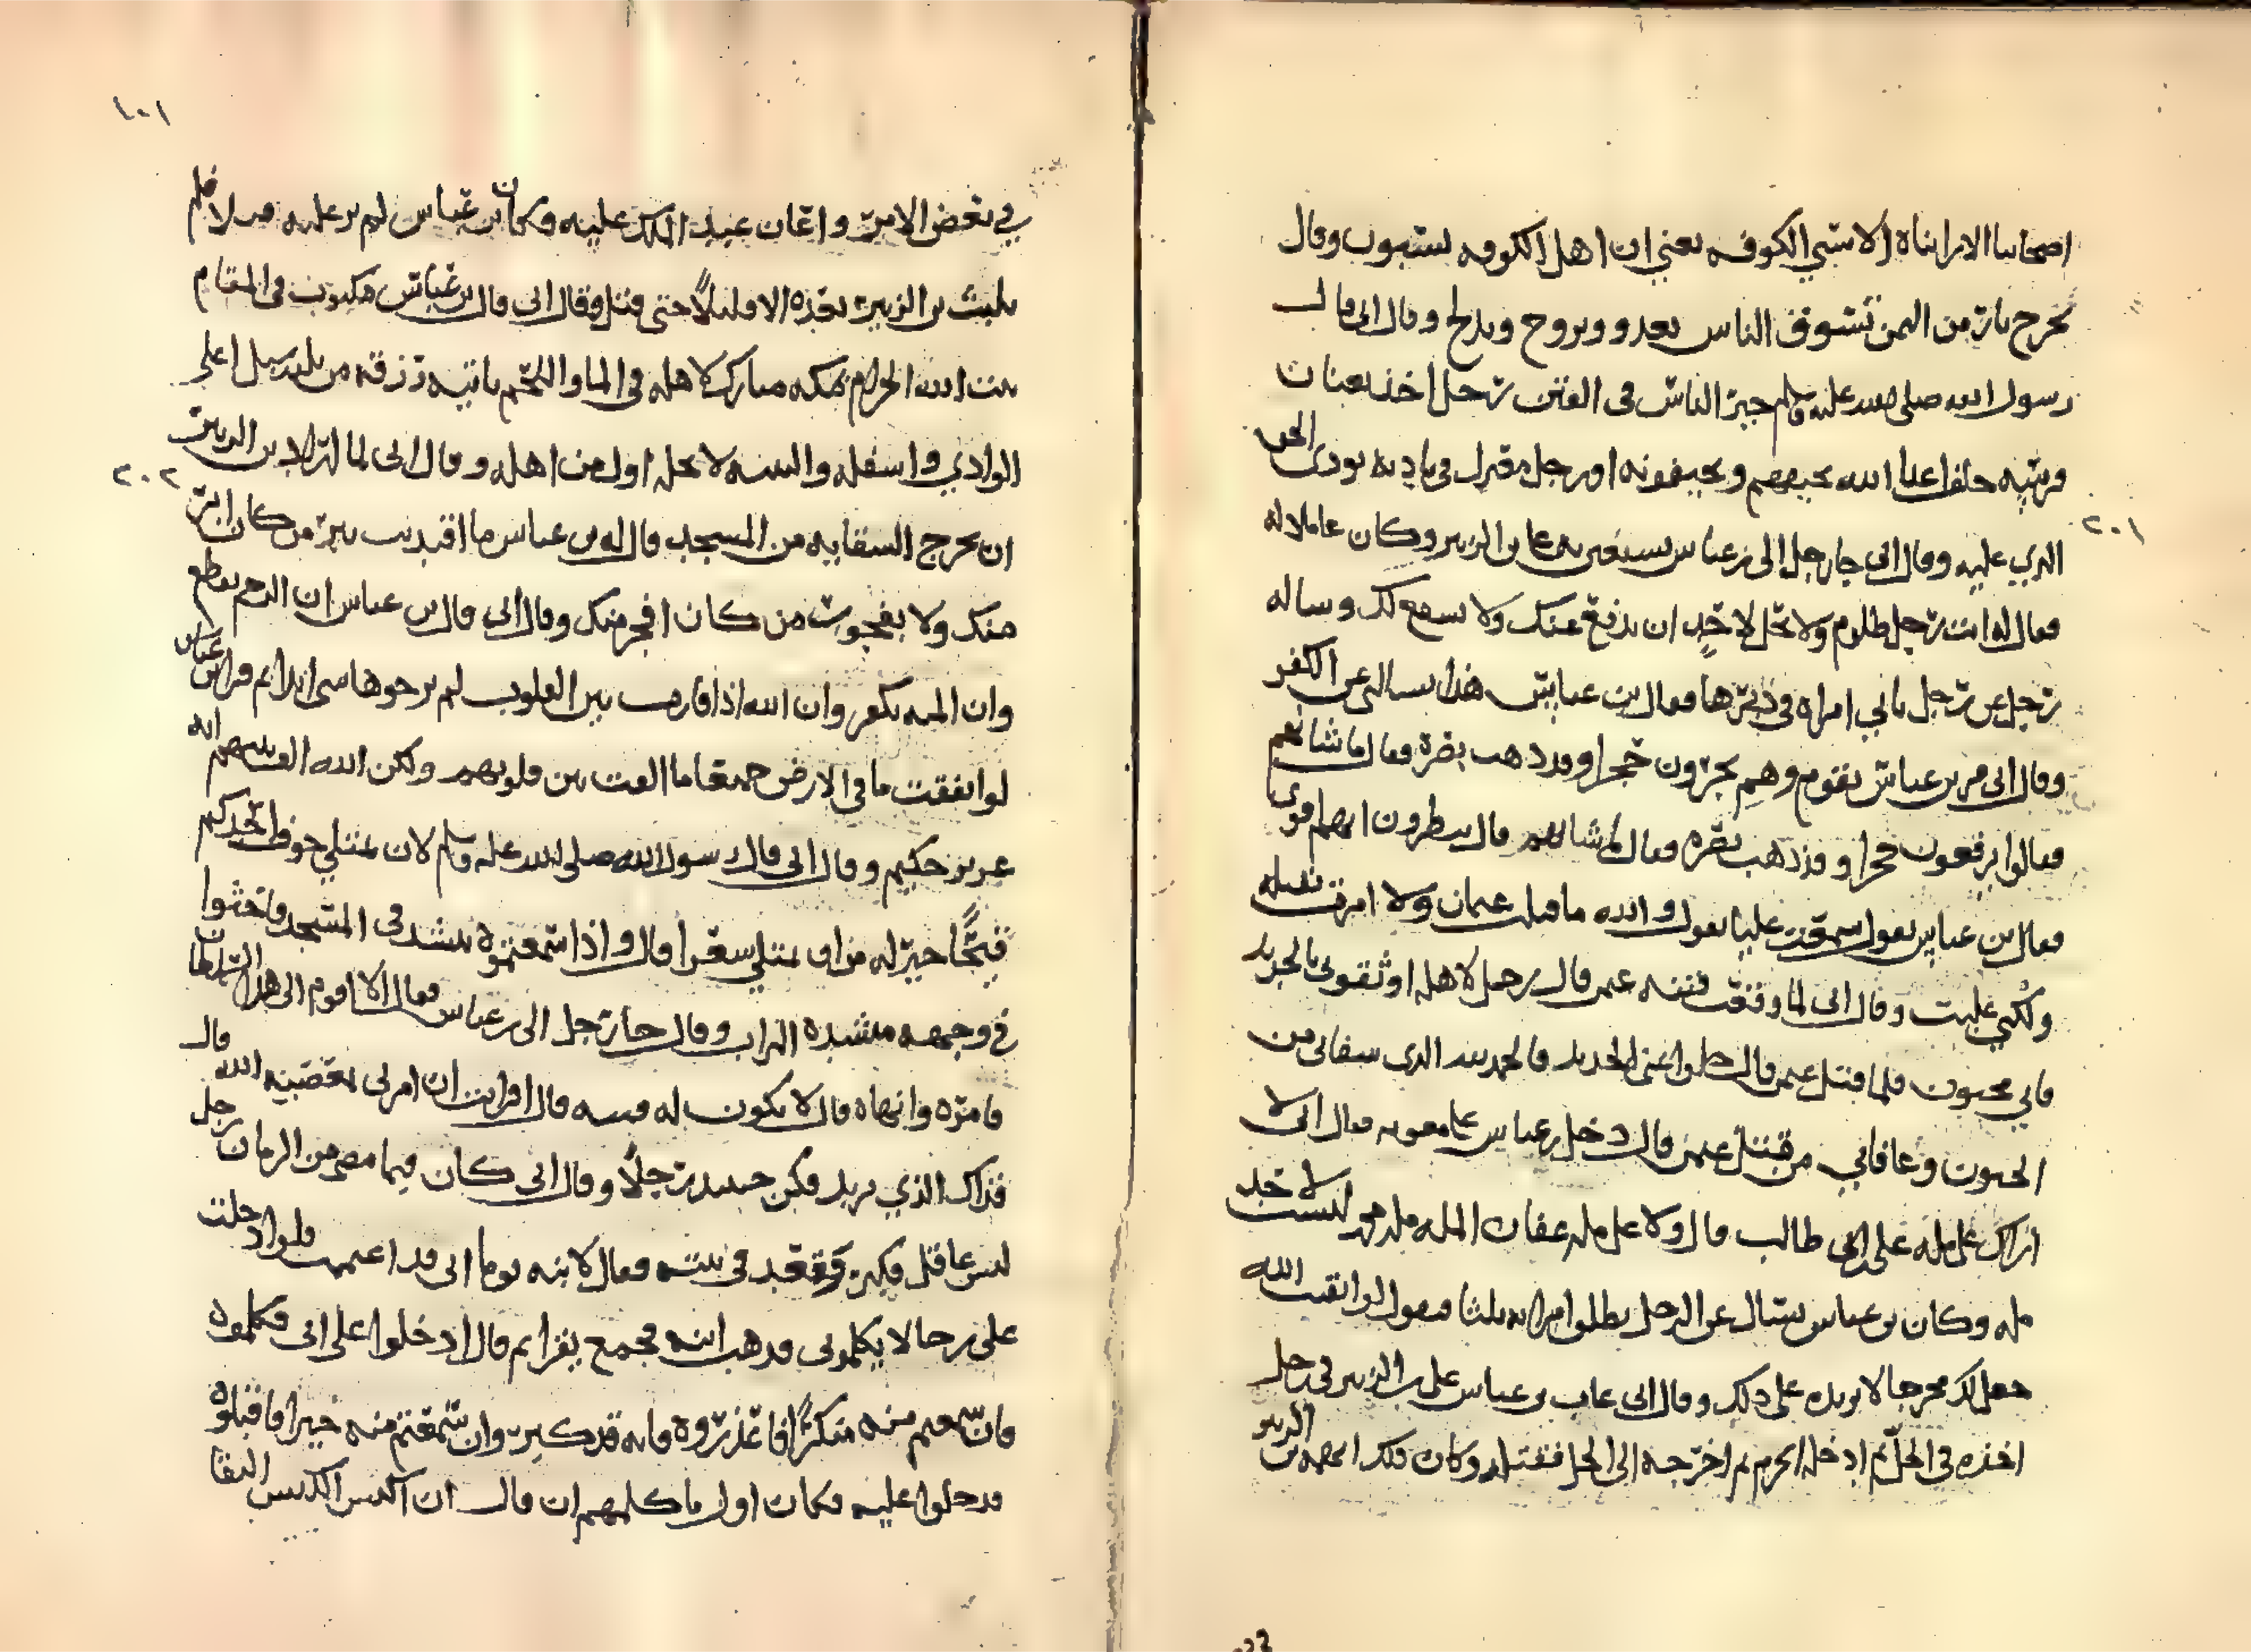 اصحابنا الا رايناه الا سبي الكوفه يعني ان اهل الكوفه يسبون وقال
يخرج نار من اليمن تسوق الناس تغدو وتروح وتدلج وقال ابي قال
رسول الله صلى الله عليه وسلم خير الناس في الفتن رجل اخذ بعنان
فرسه خلف اعدا الله يخيفهم ويخيفونه او رجل معتزل في باديه يودي الحق
٢٠١
الذي عليه وقال ابي جا رجل الى بن عباس يستعين به على بن الزبير وكان عاملا له
فقال له انت رجل ظلوم ولا يحل لاحد ان يدفع عنك ولا يشفع لك وساله
رجل عن رجل ياتي امراه في دبرها فقال بن عباس هذا يسالني عن الكفر
وقال ابي مر بن عباس بقوم وهم يجرون حجرا وقد ذهب بصره فقال ما شانهم
فقالوا يرفعون حجرا وقد ذهب بصره فقال ما شانهم قال ينظرون ايهم اقوى
فقال بن عباس يقول سمعت عليا يقول والله ما قتلت عثمان ولا امرت بقتله
ولكني غلبت وقال ابي لما وقعت فتنه عثمن قال رجل لاهله اوثقوني بالحديد
فاني مجنون فلما قتل عثمن قال حلوا عني الحديد فالحمد لله الذي شفاني من
الجنون وعافاني من قتل عثمن قال دخل بن عباس على معويه فقال اني لا
اراك على مله على بن ابي طالب قال ولا على مله عفان المله مله محمد ليست لاحد
مله وكان بن عباس يسال عن الرجل يطلق امراته ثلثا فيقول لو اتقيت الله
جعل لك مخرجا لا يزيده على ذلك وقال ابي عاب بن عباس على بن الزبير في رجل
اخذه في الحل ثم ادخله الحرم ثم اخرجه الى الحل فقتله وكان ذلك اتهمه بن الزبير
١٠١
في بعض الامر واعان عبد الملك عليه وكان بن عباس لم ير عليه قتلا فلم
يلبث بن الزبير بعده الا قليلا حتى قتل فقال ابي قال بن عباس مكتوب في المقام
بيت الله الحرام بمكه مبارك لاهله في الما واللحم ياتيه رزقه من ثلثه سبل اعلى
الوادي واسفله والثنيه لا يحله اول من اهله وقال ابي لما اراد بن الزبير
٢٠٢
ان يخرج السقايه من المسجد قال له بن عباس ما اقتديت ببر من كان ابر
منك ولا بفجور من كان افجر منك وقال ابي قال بن عباس ان الرحم يقطع
وان المنه تكفر وان الله اذا قارب بين القلوب لم يزحزحها شي ابدا ثم قرا بن عباس
لو انفقت ما في الارض جميعا ما الفت بين قلوبهم ولكن الله الف بينهم انه
عزيز حكيم وقال ابي قال رسول الله صلى الله عليه وسلم لان يمتلي جوف احدكم
قيحا خير له من ان يمتلي شعرا قال واذا سمعتموه ينشد في المسجد فاحثوا
في وجهه منشده التراب وقال جا رجل الى بن عباس فقال الا اقوم الى هذا السلطان
فامره وانهاه قال لا تكون له فتنه قال افرايت ان امرني بمعصيه الله قال
فذاك الذي تريد فكن حينئذ رجلا وقال ابي كان فيما مضى من الزمان رجل
لبس عاقل فكبر فقعد في بيته فقال لابنه يوما اني قد اغتممت فلو ادخلت
على رجالا يكلموني فذهب ابنه فجمع نفرا ثم قال ادخلوا على ابي فكلموه
فان سمعتم منه منكرا فاعذروه فانه قد كبر وان سمعتم منه خيرا فاقبلوه
فدخلوا عليه فكان اول ما كلمهم ان قال ان اكيس الكيس التقا